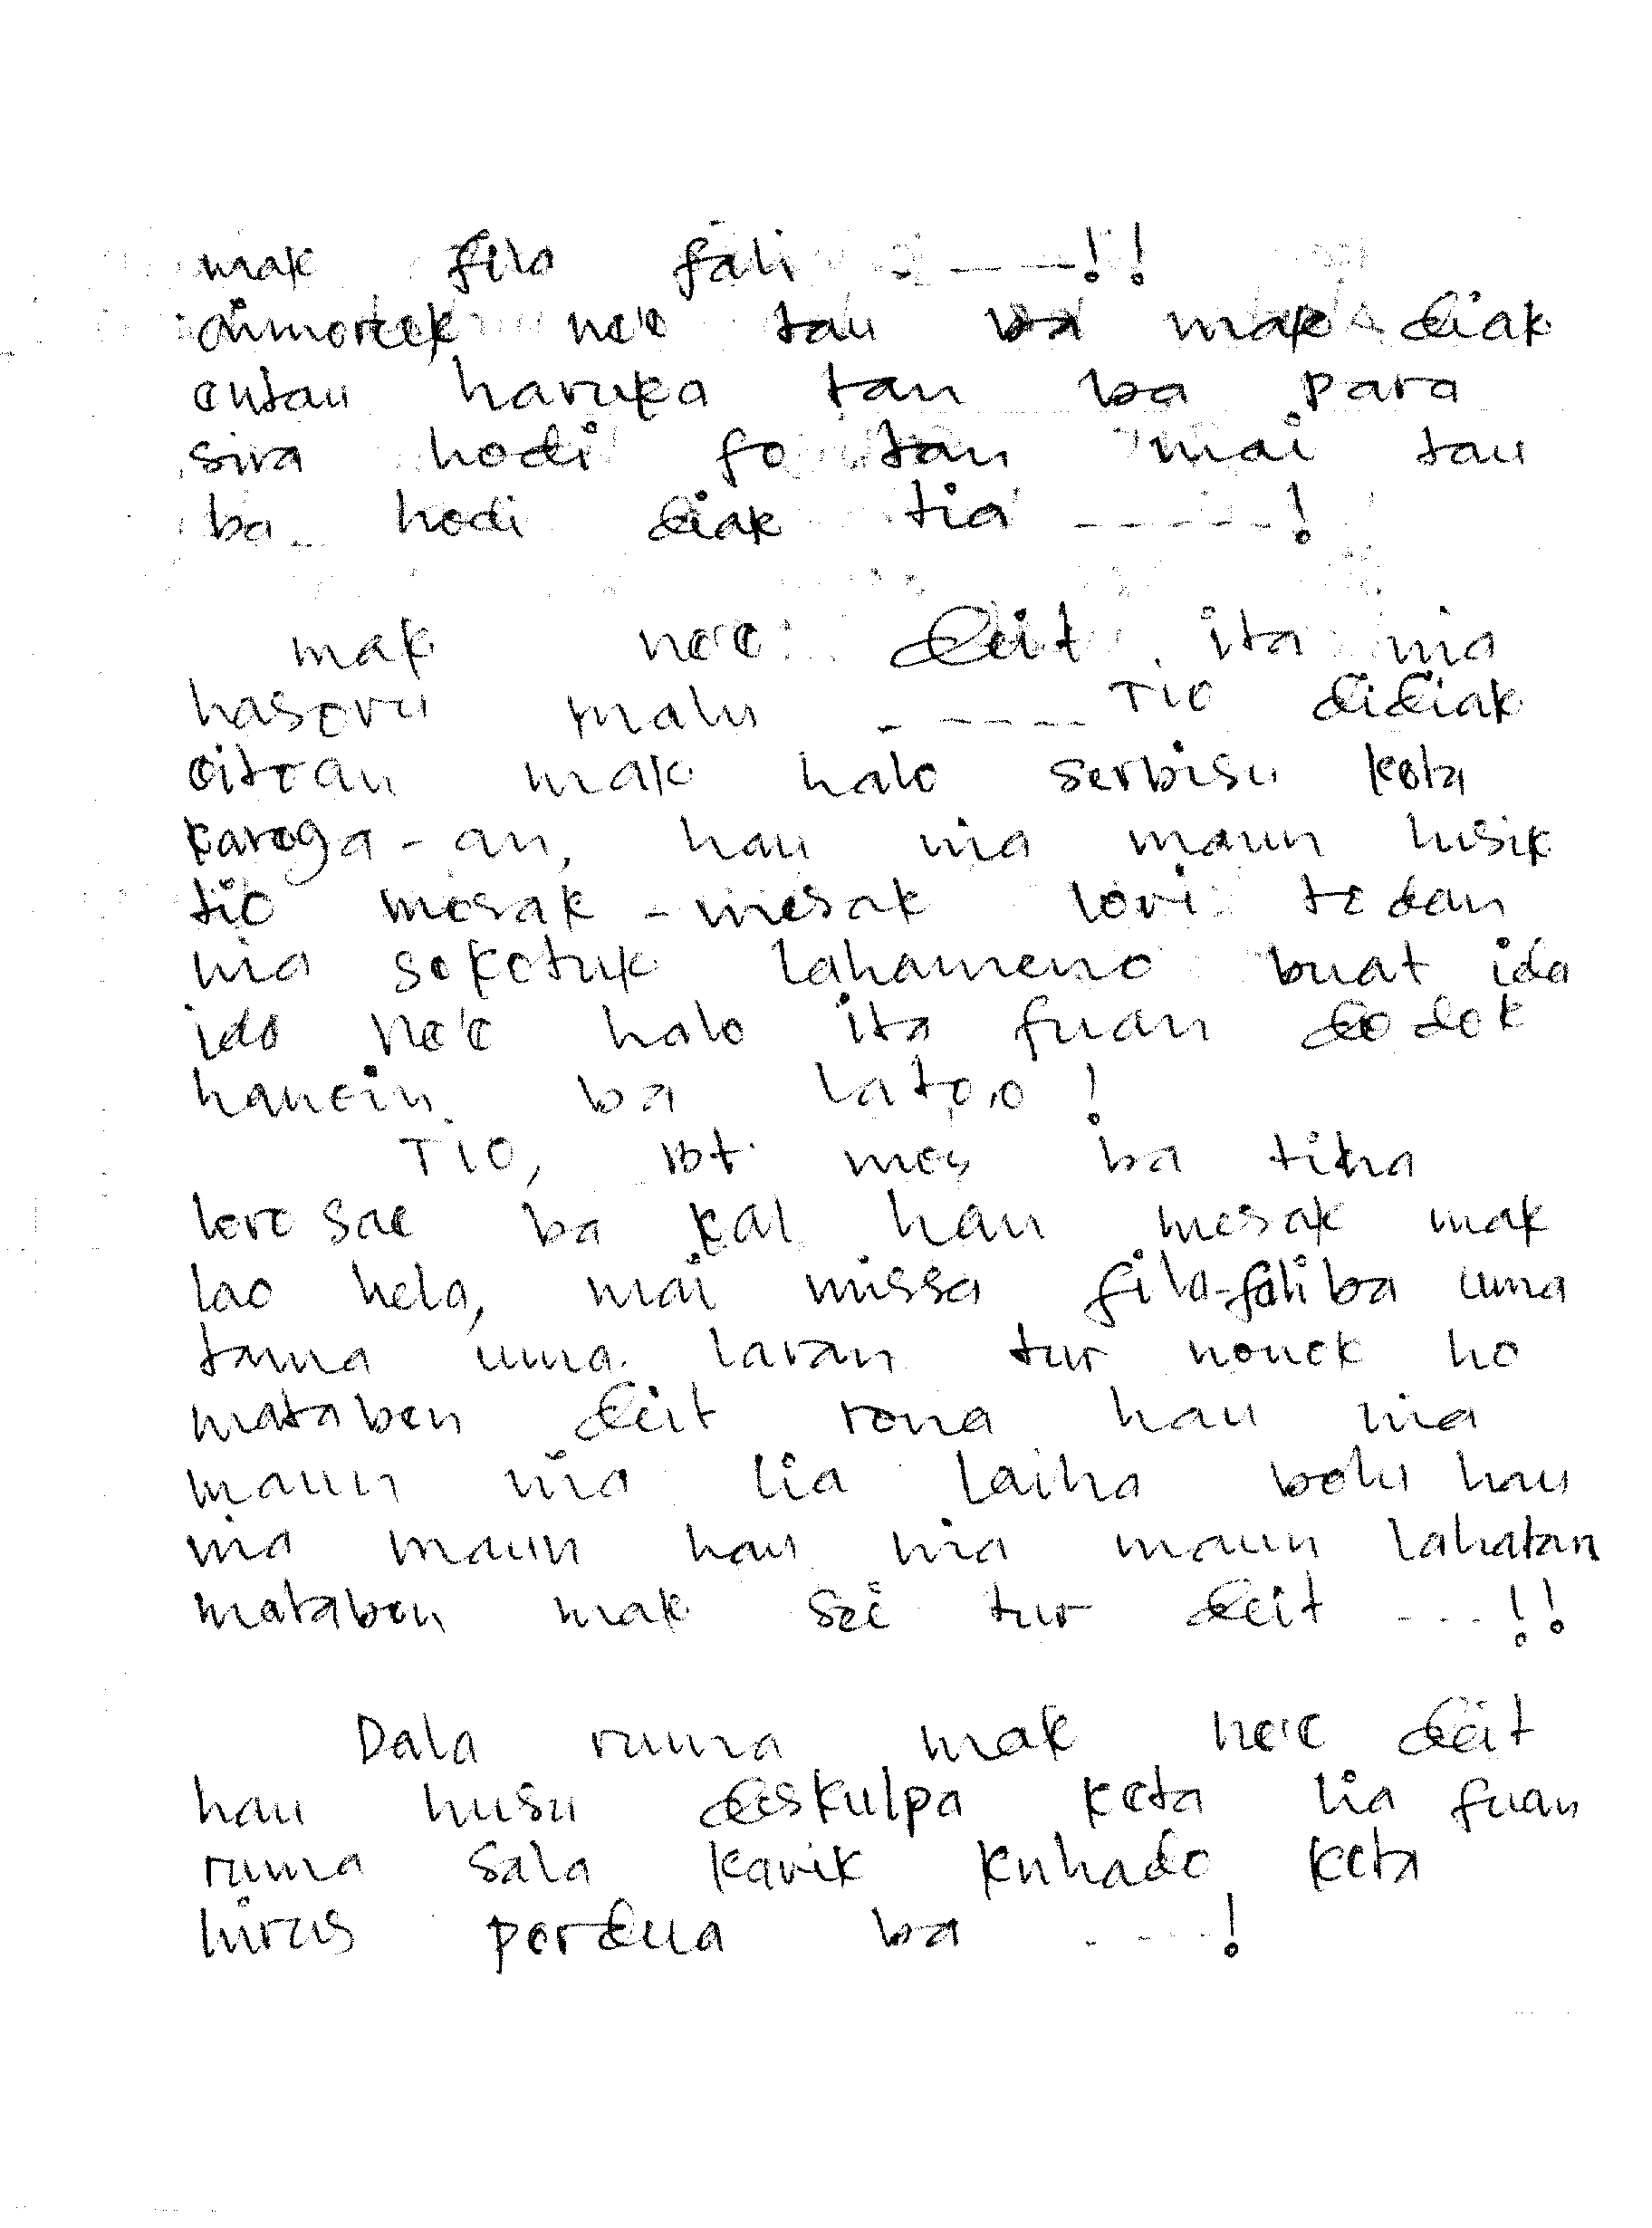 mak fila fali - - - - !!
aimoruk ne'e tau ba mak diak
entau haruka tan ba para
sira hodi fo tan mai tau
ba hodi diak tia - - - - - !
mak ne'e deit ita nia
hasoru malu - - - - - TIO didiak
oitoan mak halo serbisu keta
karoga-an, hau nia maun husik
tio mesak-mesak lori todan
nia seketuk lahameno buat ida
ida ne'e halo ita fuan dodok
hanein ba lato,o !
TIO, mos ba tiha
lorosae ba kal hau mesak mak
lao hela, mai missa fila-fali ba uma
tama uma laran tur nonek ho
mataben deit rona hau nia
maun nia lia laiha bolu hau
nia maun hau nia maun lahatan
mataben mak sei tur deit - - - !!
Dala ruma mak ne'e deit
hau husu deskulpa keta lia fuan
ruma sala kavik kuhado keta
hirus perdua ba - - - - !